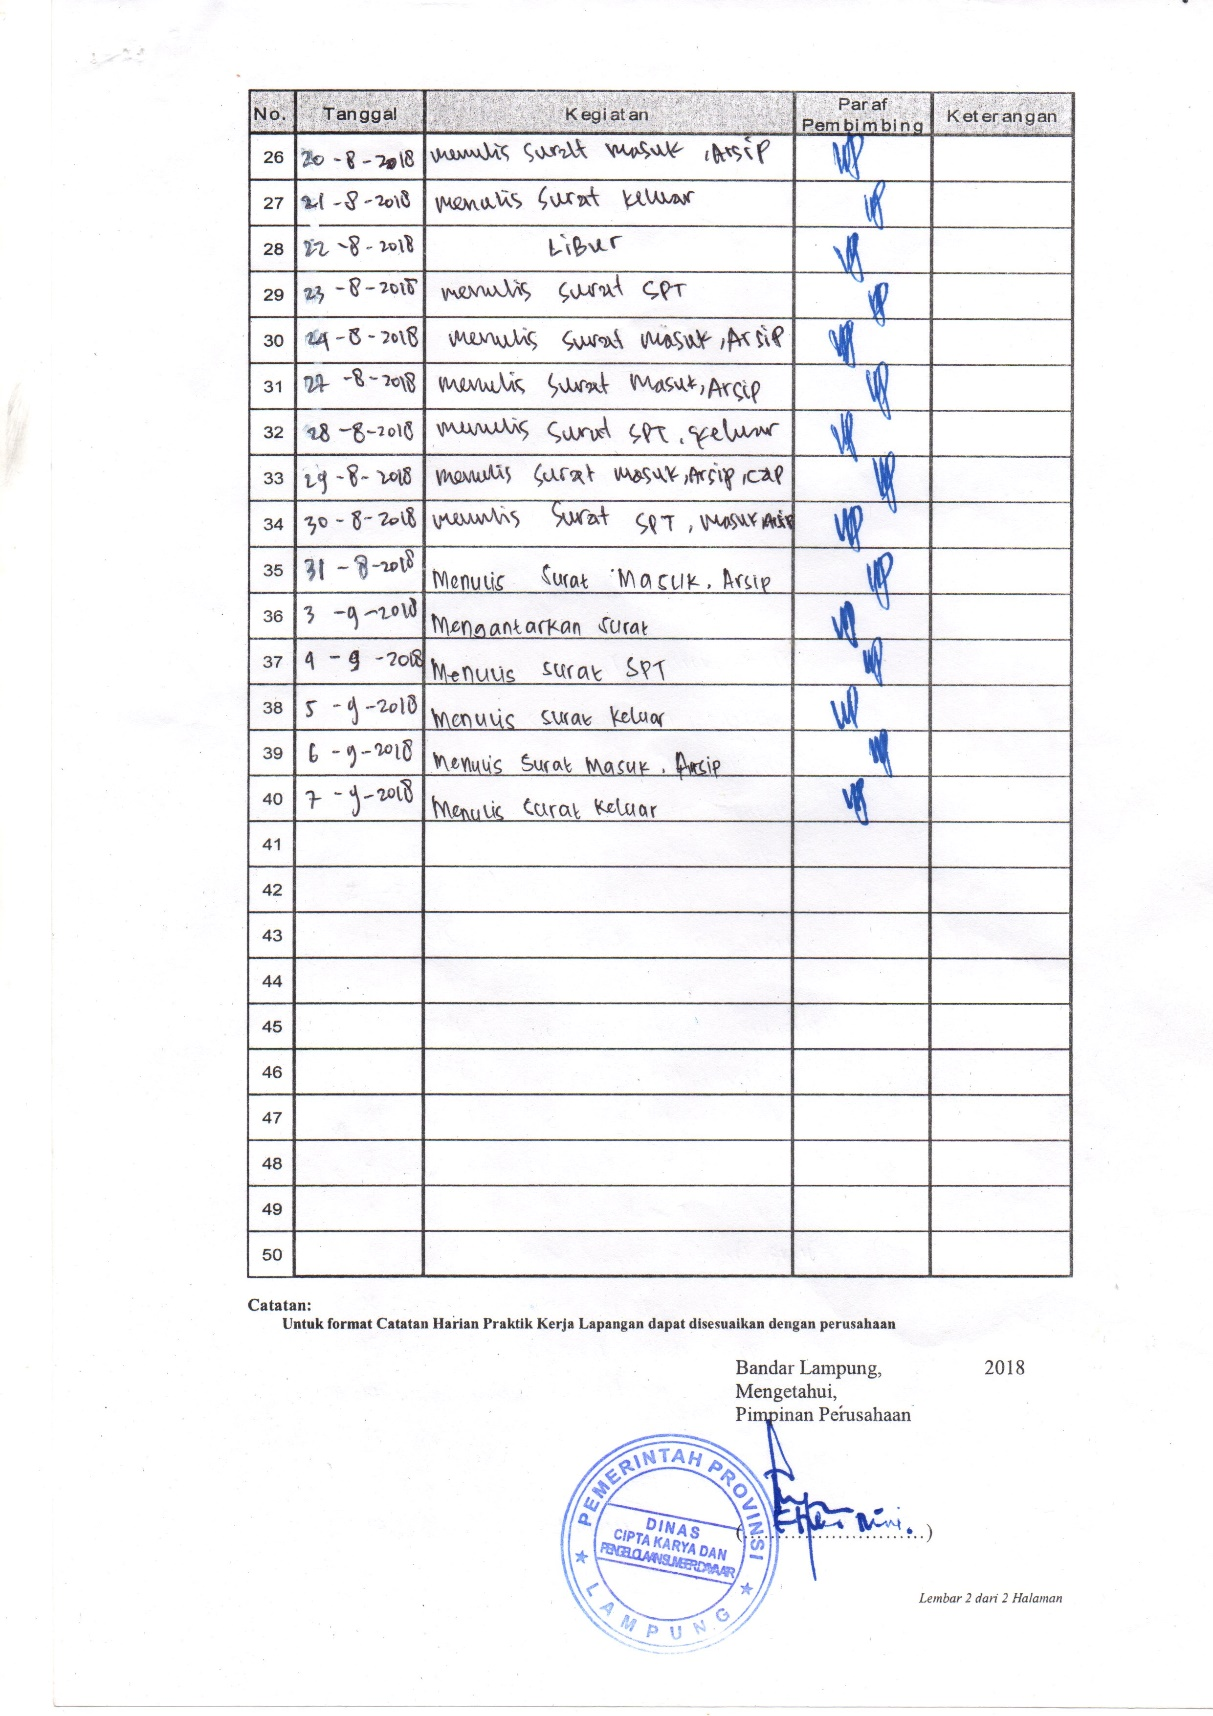 No. Tanggal Kegiatan Paraf Pembimbing Keterangan
26 20-8-2018 menulis surat masuk, Arsip
27 21-8-2018 menulis surat keluar
28 22-8-2018 Libur
29 23-8-2018 menulis surat SPT
30 24-8-2018 menulis surat masuk, Arsip
31 27-8-2018 menulis surat Masuk, Arsip
32 28-8-2018 menulis surat SPT, keluar
33 29-8-2018 menulis surat masuk, Arsip, cap
34 30-8-2018 menulis Surat SPT, masuk, Arsip
35 31-8-2018 Menulis Surat Masuk. Arsip
36 3-9-2018 Mengantarkan surat
37 4-9-2018 Menulis surat SPT
38 5-9-2018 Menulis surat keluar
39 6-9-2018 Menulis Surat Masuk. Arsip
40 7-9-2018 Menulis Surat Keluar
41
42
43
44
45
46
47
48
49
50
Catatan:
Untuk format Catatan Harian Praktik Kerja Lapangan dapat disesuaikan dengan perusahaan
Bandar Lampung, 2018
Mengetahui,
Pimpinan Perusahaan
PEMERINTAH PROVINSI
DINAS
CIPTA KARYA DAN
PENGELOLAAN SUMBER DAYA AIR
LAMPUNG
Lembar 2 dari 2 Halaman